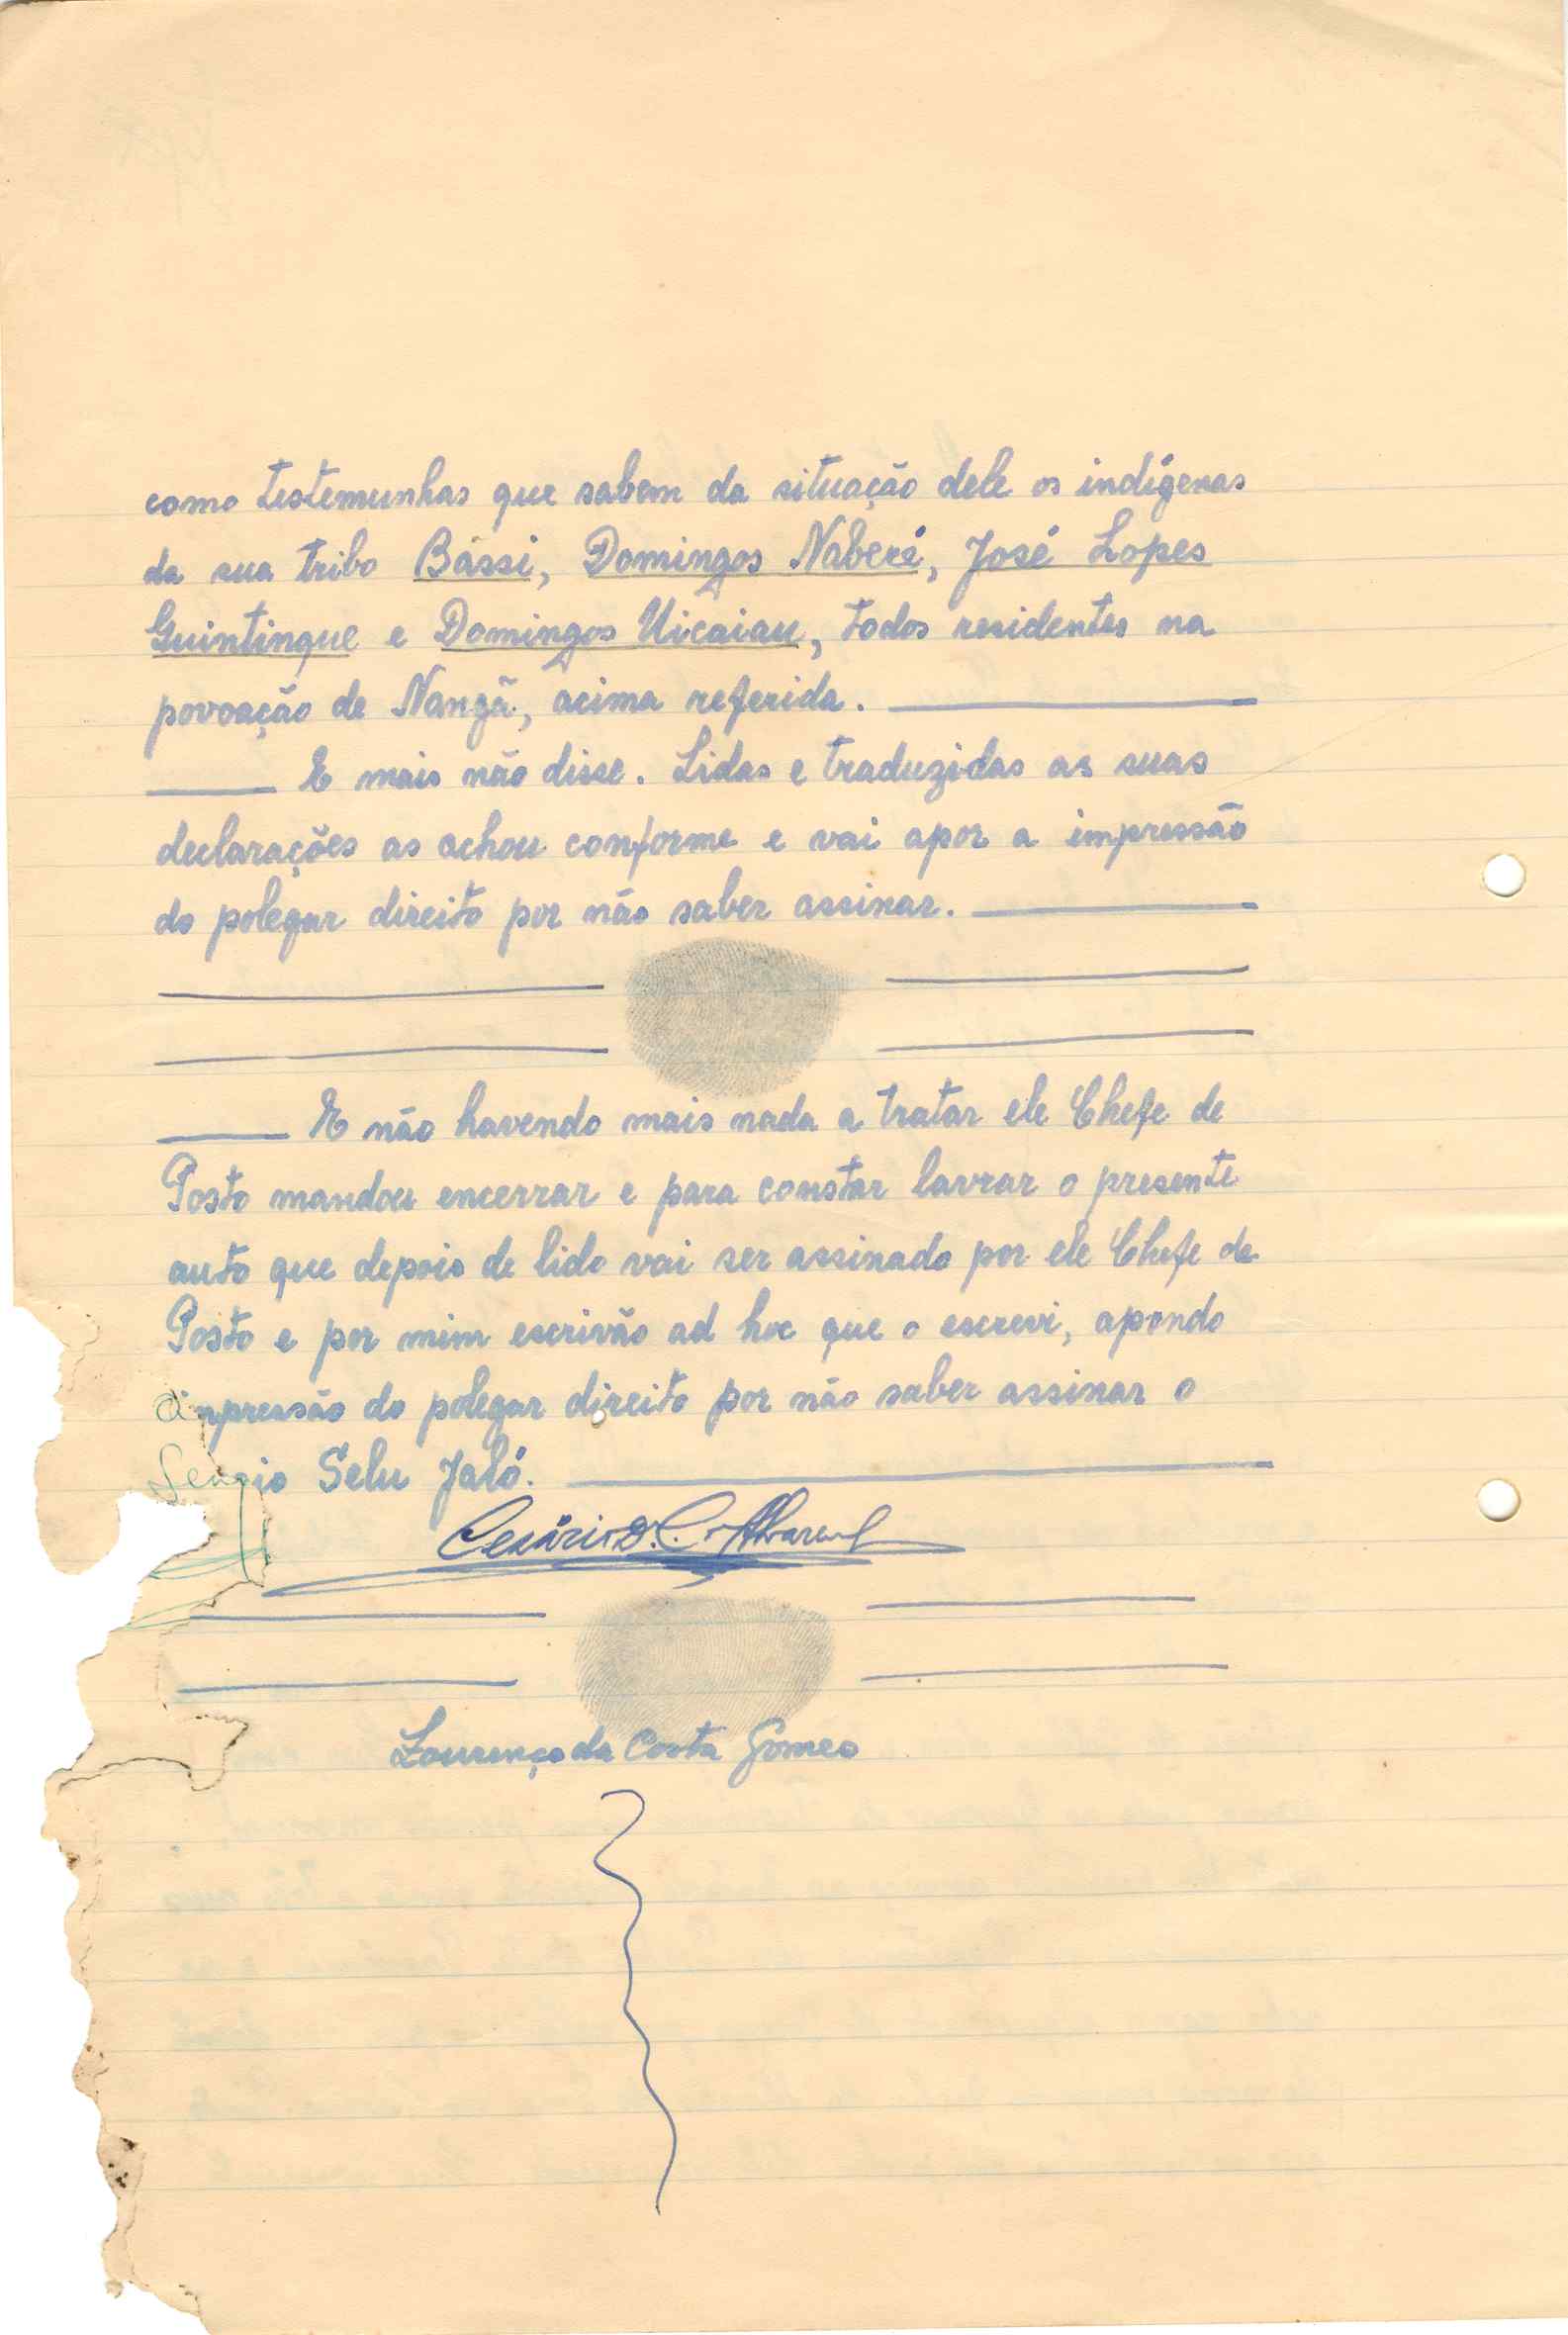 como testemunhas que sabem da situação dele os indígenas
da sua tribo Bássi, Domingos Naberé, José Lopes
Guintingue e Domingos Uicaiau, todos residentes na
povoação de Nangã, acima referida.
E mais não disse. Lidas e traduzidas as suas
declarações as achou conforme e vai apor a impressão
do polegar direito por não saber assinar.
E não havendo mais nada a tratar ele Chefe de
Posto mandou encerrar e para constar lavrar o presente
auto que depois de lido vai ser assinado por ele Chefe de
Posto e por mim escrivão ad hoc que o escrevi, apondo
a impressão do polegar direito por não saber assinar o
Selu Jaló.
Cesário D. C. Alvarenga
Lourenço da Costa Gomes